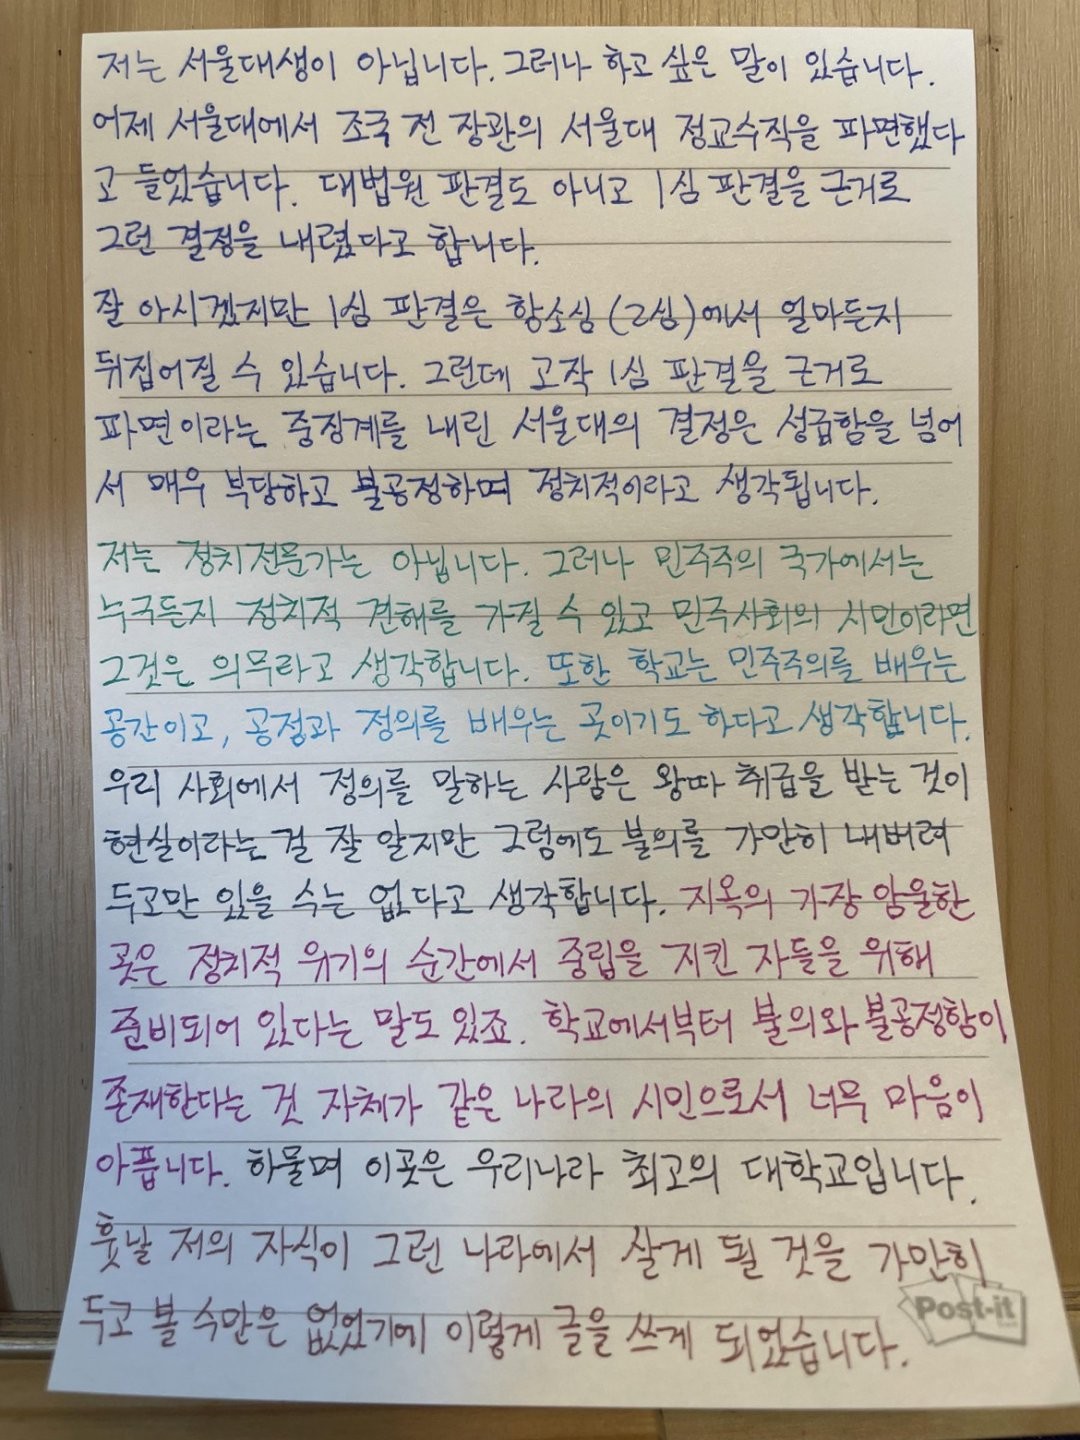 저는 서울대생이 아닙니다. 그러나 하고 싶은 말이 있습니다.
어제 서울대에서 조국 전 장관의 서울대 정교수직을 파면했다
고 들었습니다. 대법원 판결도 아니고 1심 판결을 근거로
그런 결정을 내렸다고 합니다.
잘 아시겠지만 1심 판결은 항소심(2심)에서 얼마든지
뒤집어질 수 있습니다. 그런데 고작 1심 판결을 근거로
파면이라는 중징계를 내린 서울대의 결정은 성급함을 넘어
서 매우 부당하고 불공정하며 정치적이라고 생각됩니다.
저는 정치전문가는 아닙니다. 그러나 민주주의 국가에서는
누구든지 정치적 견해를 가질 수 있고 민주사회의 시민이라면
그것은 의무라고 생각합니다. 또한 학교는 민주주의를 배우는
공간이고, 공정과 정의를 배우는 곳이기도 하다고 생각합니다.
우리 사회에서 정의를 말하는 사람은 왕따 취급을 받는 것이
현실이라는 걸 잘 알지만 그럼에도 불의를 가만히 내버려
두고만 있을 수는 없다고 생각합니다. 지옥의 가장 암울한
곳은 정치적 위기의 순간에서 중립을 지킨 자들을 위해
준비되어 있다는 말도 있죠. 학교에서부터 불의와 불공정함이
존재한다는 것 자체가 같은 나라의 시민으로서 너무 마음이
아픕니다. 하물며 이곳은 우리나라 최고의 대학교입니다.
훗날 저의 자식이 그런 나라에서 살게 될 것을 가만히
두고 볼 수만은 없었기에 이렇게 글을 쓰게 되었습니다.
Post-it